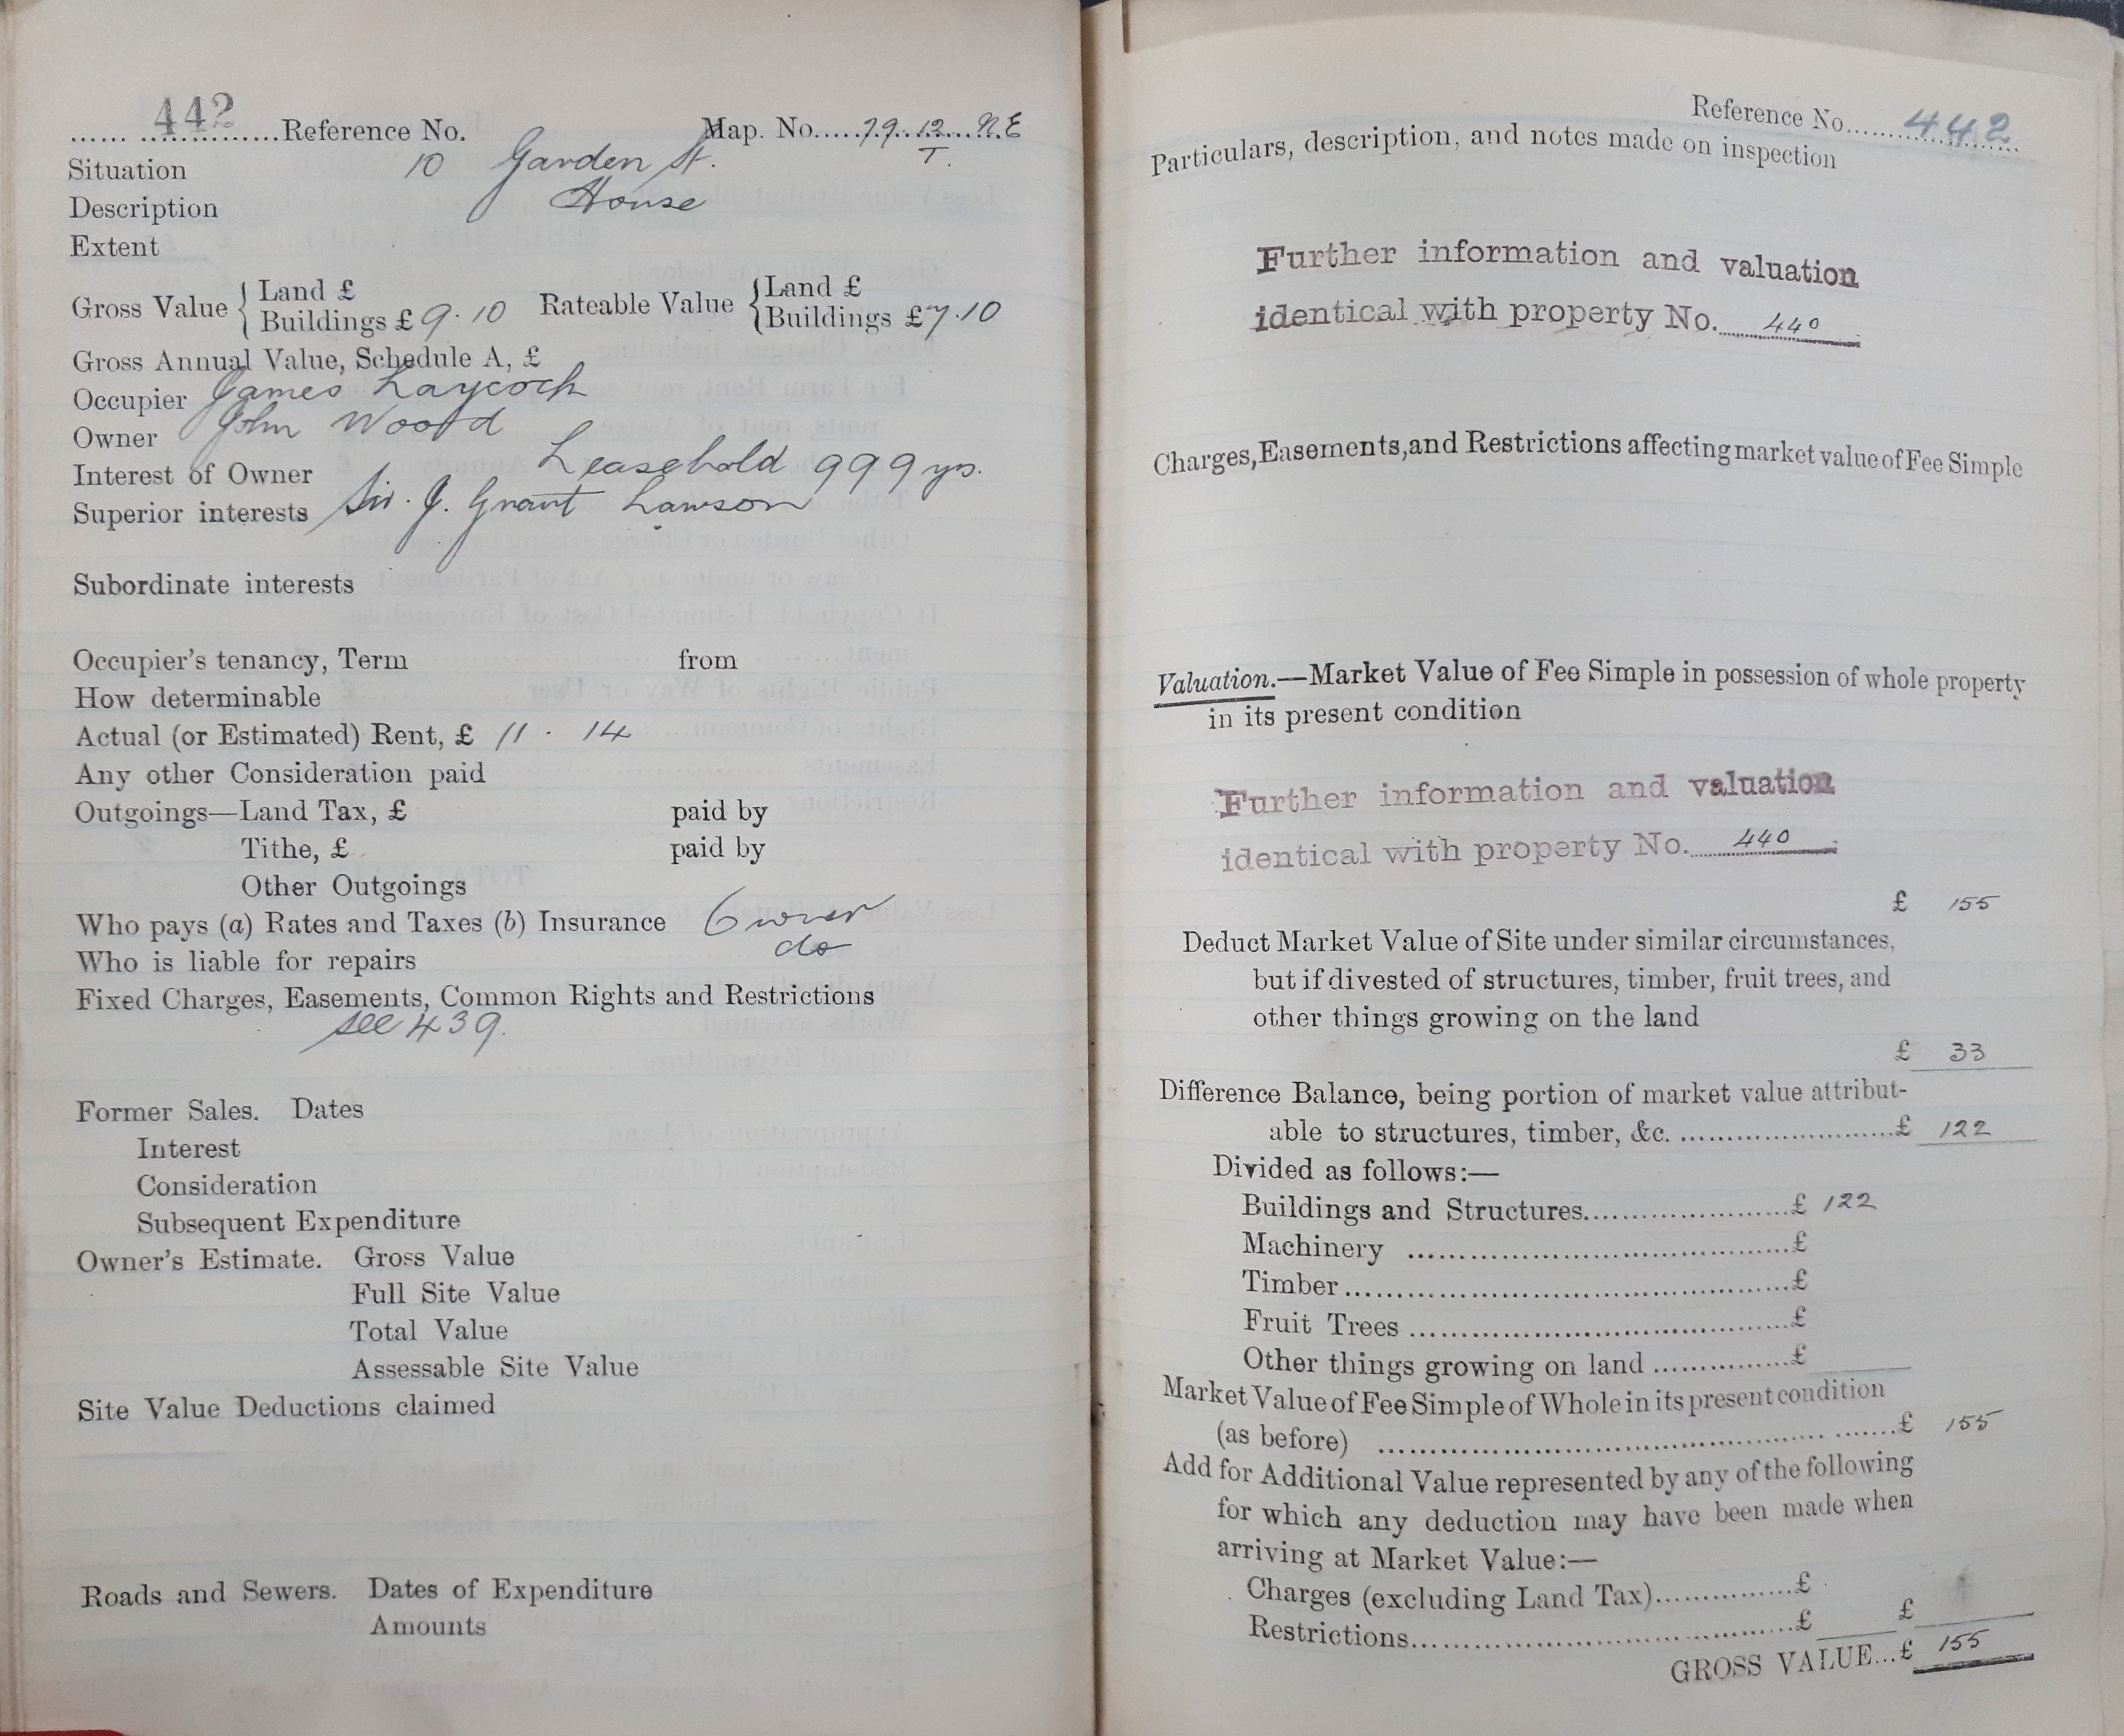 442 Reference No. Map. No. 79. 12. N.E
T.
Situation 10 Garden St.
Description House
Extent
Gross Value { Land £ Rateable Value { Land £
Buildings £ 9. 10 Buildings £ 7.10
Gross Annual Value, Schedule A, £
Occupier James Laycock
Owner John Wood
Interest of Owner Leasehold 999 yrs.
Superior interests Sir. J. Grant Lawson
Subordinate interests
Occupier's tenancy, Term from
How determinable
Actual (or Estimated) Rent, £ 11 . 14
Any other Consideration paid
Outgoings—Land Tax, £ paid by
Tithe, £ paid by
Other Outgoings
Who pays (a) Rates and Taxes (b) Insurance Owner
Who is liable for repairs do
Fixed Charges, Easements, Common Rights and Restrictions
see 439.
Former Sales. Dates
Interest
Consideration
Subsequent Expenditure
Owner's Estimate. Gross Value
Full Site Value
Total Value
Assessable Site Value
Site Value Deductions claimed
Roads and Sewers. Dates of Expenditure
Amounts
Reference No. 442
Particulars, description, and notes made on inspection
Further information and valuation
identical with property No. 440
Charges, Easements, and Restrictions affecting market value of Fee Simple
Valuation.—Market Value of Fee Simple in possession of whole property
in its present condition
Further information and valuation
identical with property No. 440
£ 155
Deduct Market Value of Site under similar circumstances,
but if divested of structures, timber, fruit trees, and
other things growing on the land
£ 33
Difference Balance, being portion of market value attribut-
able to structures, timber, &c. £ 122
Divided as follows:—
Buildings and Structures £ 122
Machinery £
Timber £
Fruit Trees £
Other things growing on land £
Market Value of Fee Simple of Whole in its present condition
(as before) £ 155
Add for Additional Value represented by any of the following
for which any deduction may have been made when
arriving at Market Value:—
Charges (excluding Land Tax) £
Restrictions £ £
GROSS VALUE... £ 155